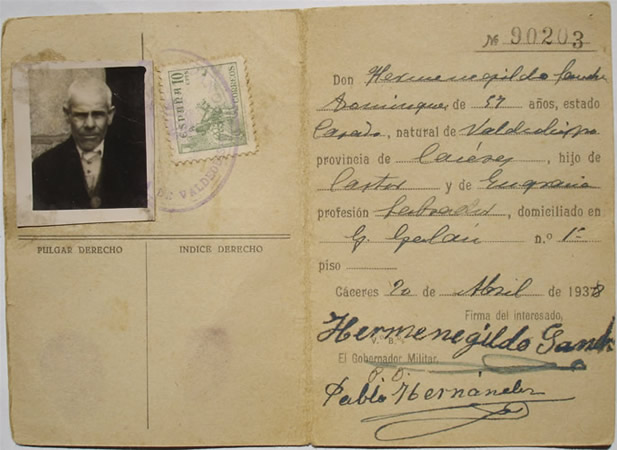 ESPAÑA 10 CTS. CORREOS
DE VALDEO
PULGAR DERECHO
INDICE DERECHO
№ 90203
Don Hermenegildo Sanche
Dominguez de 57 años, estado
Casado, natural de Valdeobispo
provincia de Cáceres, hijo de
Castor y de Engracia
profesión Labrador, domiciliado en
G. n.º 1
piso
Cáceres 20 de Abril de 1938
Firma del interesado,
Hermenegildo Sanch
V. B.
El Gobernador Militar,
P. O.
Pablo Hernández